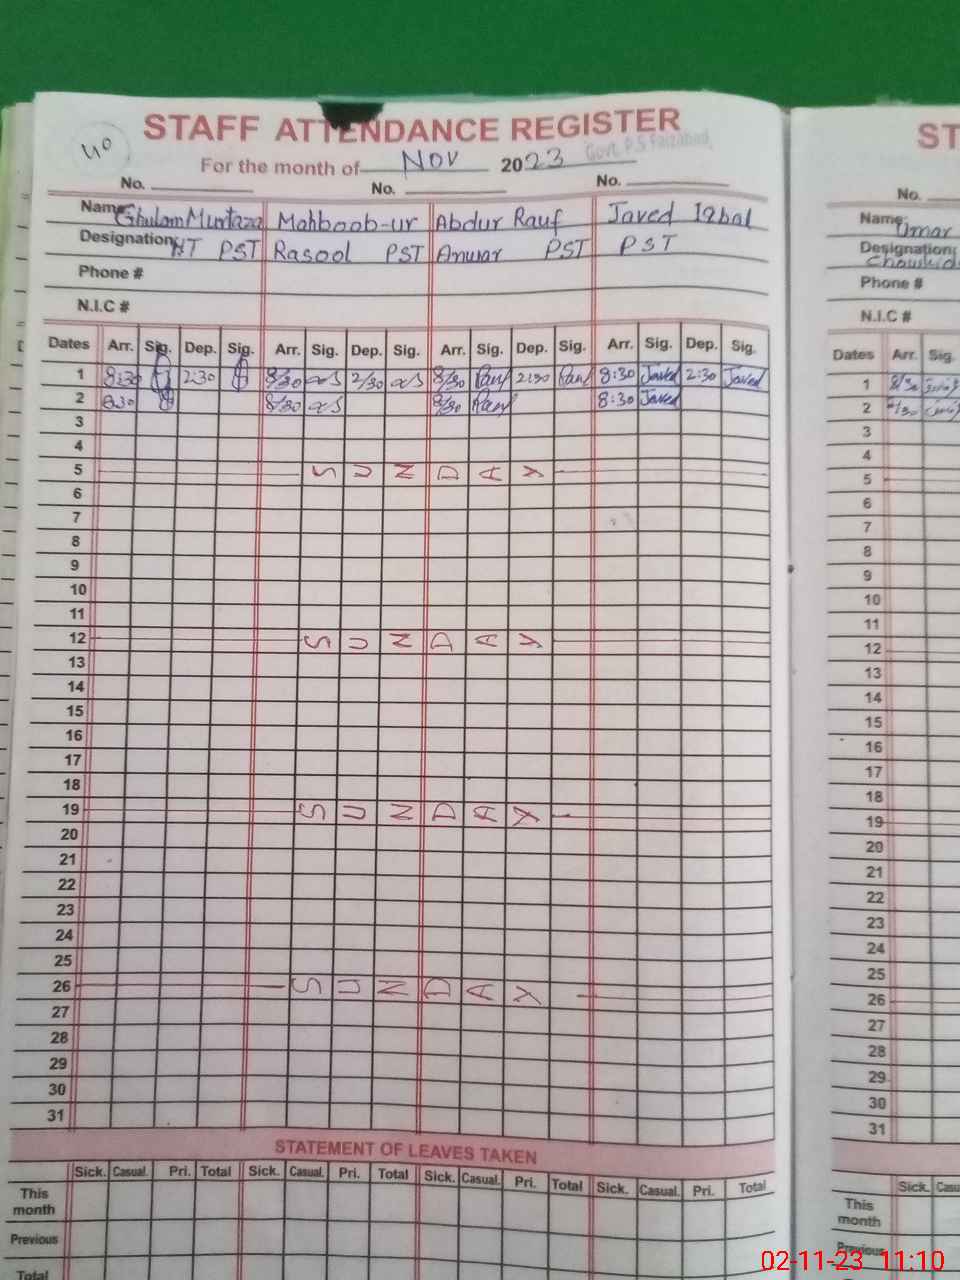 40
STAFF ATTENDANCE REGISTER
For the month of Nov 2023 Govt. P.S Faizabad
No. No. No.
Name: Ghulam Murtaza Mahboob-ur Abdur Rauf Javed Iqbal
Designation: HT PST Rasool PST Anwar PST PST
Phone #
N.I.C #
Dates Arr. Sig. Dep. Sig. Arr. Sig. Dep. Sig. Arr. Sig. Dep. Sig. Arr. Sig. Dep. Sig.
1 8:30 2:30 8/30 2/30 8/30 Rauf 2:30 Rauf 8:30 Javed 2:30 Javed
2 8:30 8/30 8/30 Rauf 8:30 Javed
3
4
5 S U N D A Y
6
7
8
9
10
11
12 S U N D A Y
13
14
15
16
17
18
19 S U N D A Y
20
21
22
23
24
25
26 S U N D A Y
27
28
29
30
31
STATEMENT OF LEAVES TAKEN
Sick. Casual. Pri. Total Sick. Casual. Pri. Total Sick. Casual. Pri. Total Sick. Casual. Pri. Total
This month
Previous
Total
ST
No.
Name: Umar
Designation:
Phone #
N.I.C #
Dates Arr. Sig.
1 8/30
2
3
4
5
6
7
8
9
10
11
12
13
14
15
16
17
18
19
20
21
22
23
24
25
26
27
28
29
30
31
Sick. Casu
This month
Previous
02-11-23 11:10